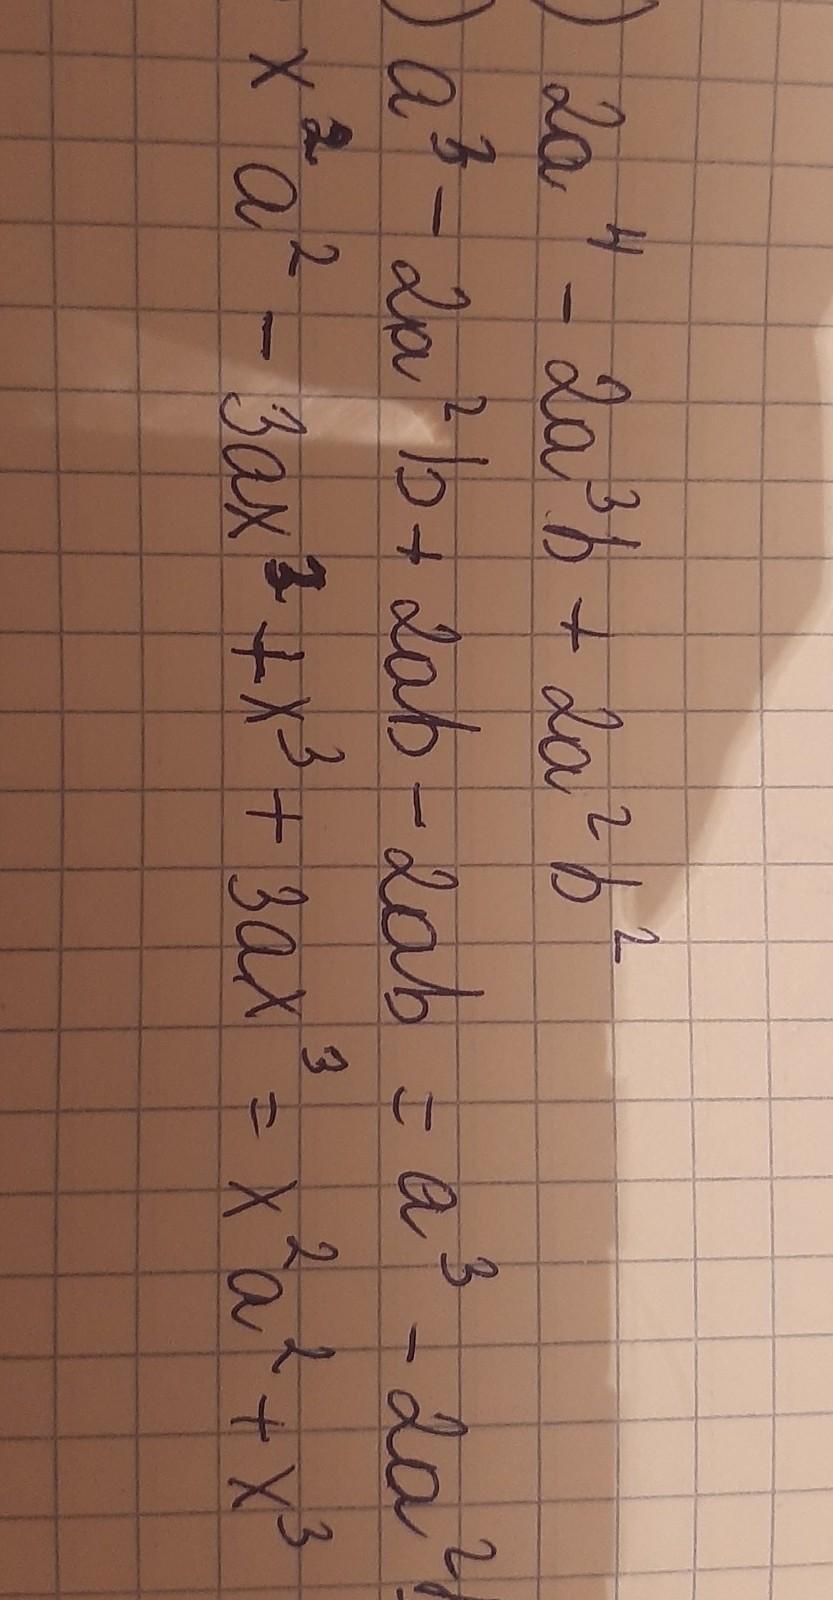 ) 2a⁴ - 2a³b + 2a²b²
) a³ - 2a²b + 2ab - 2ab = a³ - 2a²
x²a² - 3ax³ + x³ + 3ax³ = x²a² + x³